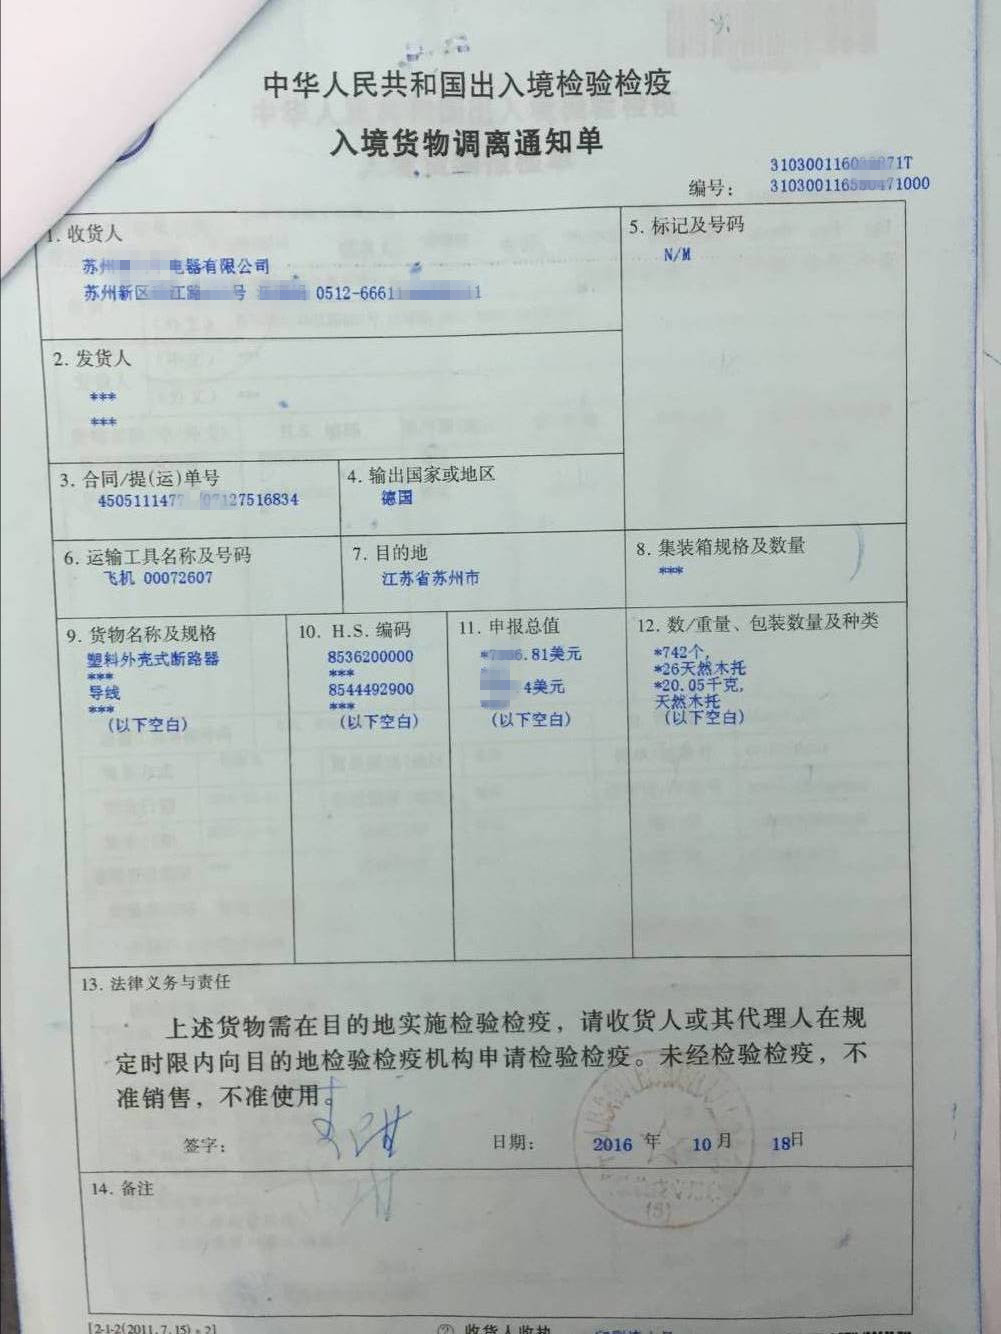 中华人民共和国出入境检验检疫
入境货物调离通知单
编号：
1. 收货人
苏州 电器有限公司
苏州新区 江 号 0512-6661
5. 标记及号码
N/M
2. 发货人
***
***
3. 合同/提(运)单号
4505111477 07127516834
4. 输出国家或地区
德国
6. 运输工具名称及号码
飞机 00072607
7. 目的地
江苏省苏州市
8. 集装箱规格及数量
***
9. 货物名称及规格
塑料外壳式断路器
***
导线
***
(以下空白)
10. H.S. 编码
8536200000
***
8544492900
***
(以下空白)
11. 申报总值
.81美元
4美元
(以下空白)
12. 数/重量、包装数量及种类
*742个,
*26天然木托
*20.05千克,
天然木托
(以下空白)
13. 法律义务与责任
上述货物需在目的地实施检验检疫，请收货人或其代理人在规
定时限内向目的地检验检疫机构申请检验检疫。未经检验检疫，不
准销售，不准使用。
签字：
日期： 2016 年 10 月 18日
14. 备注
[2-1-2(2011.7.15)*2]
② 收货人收执